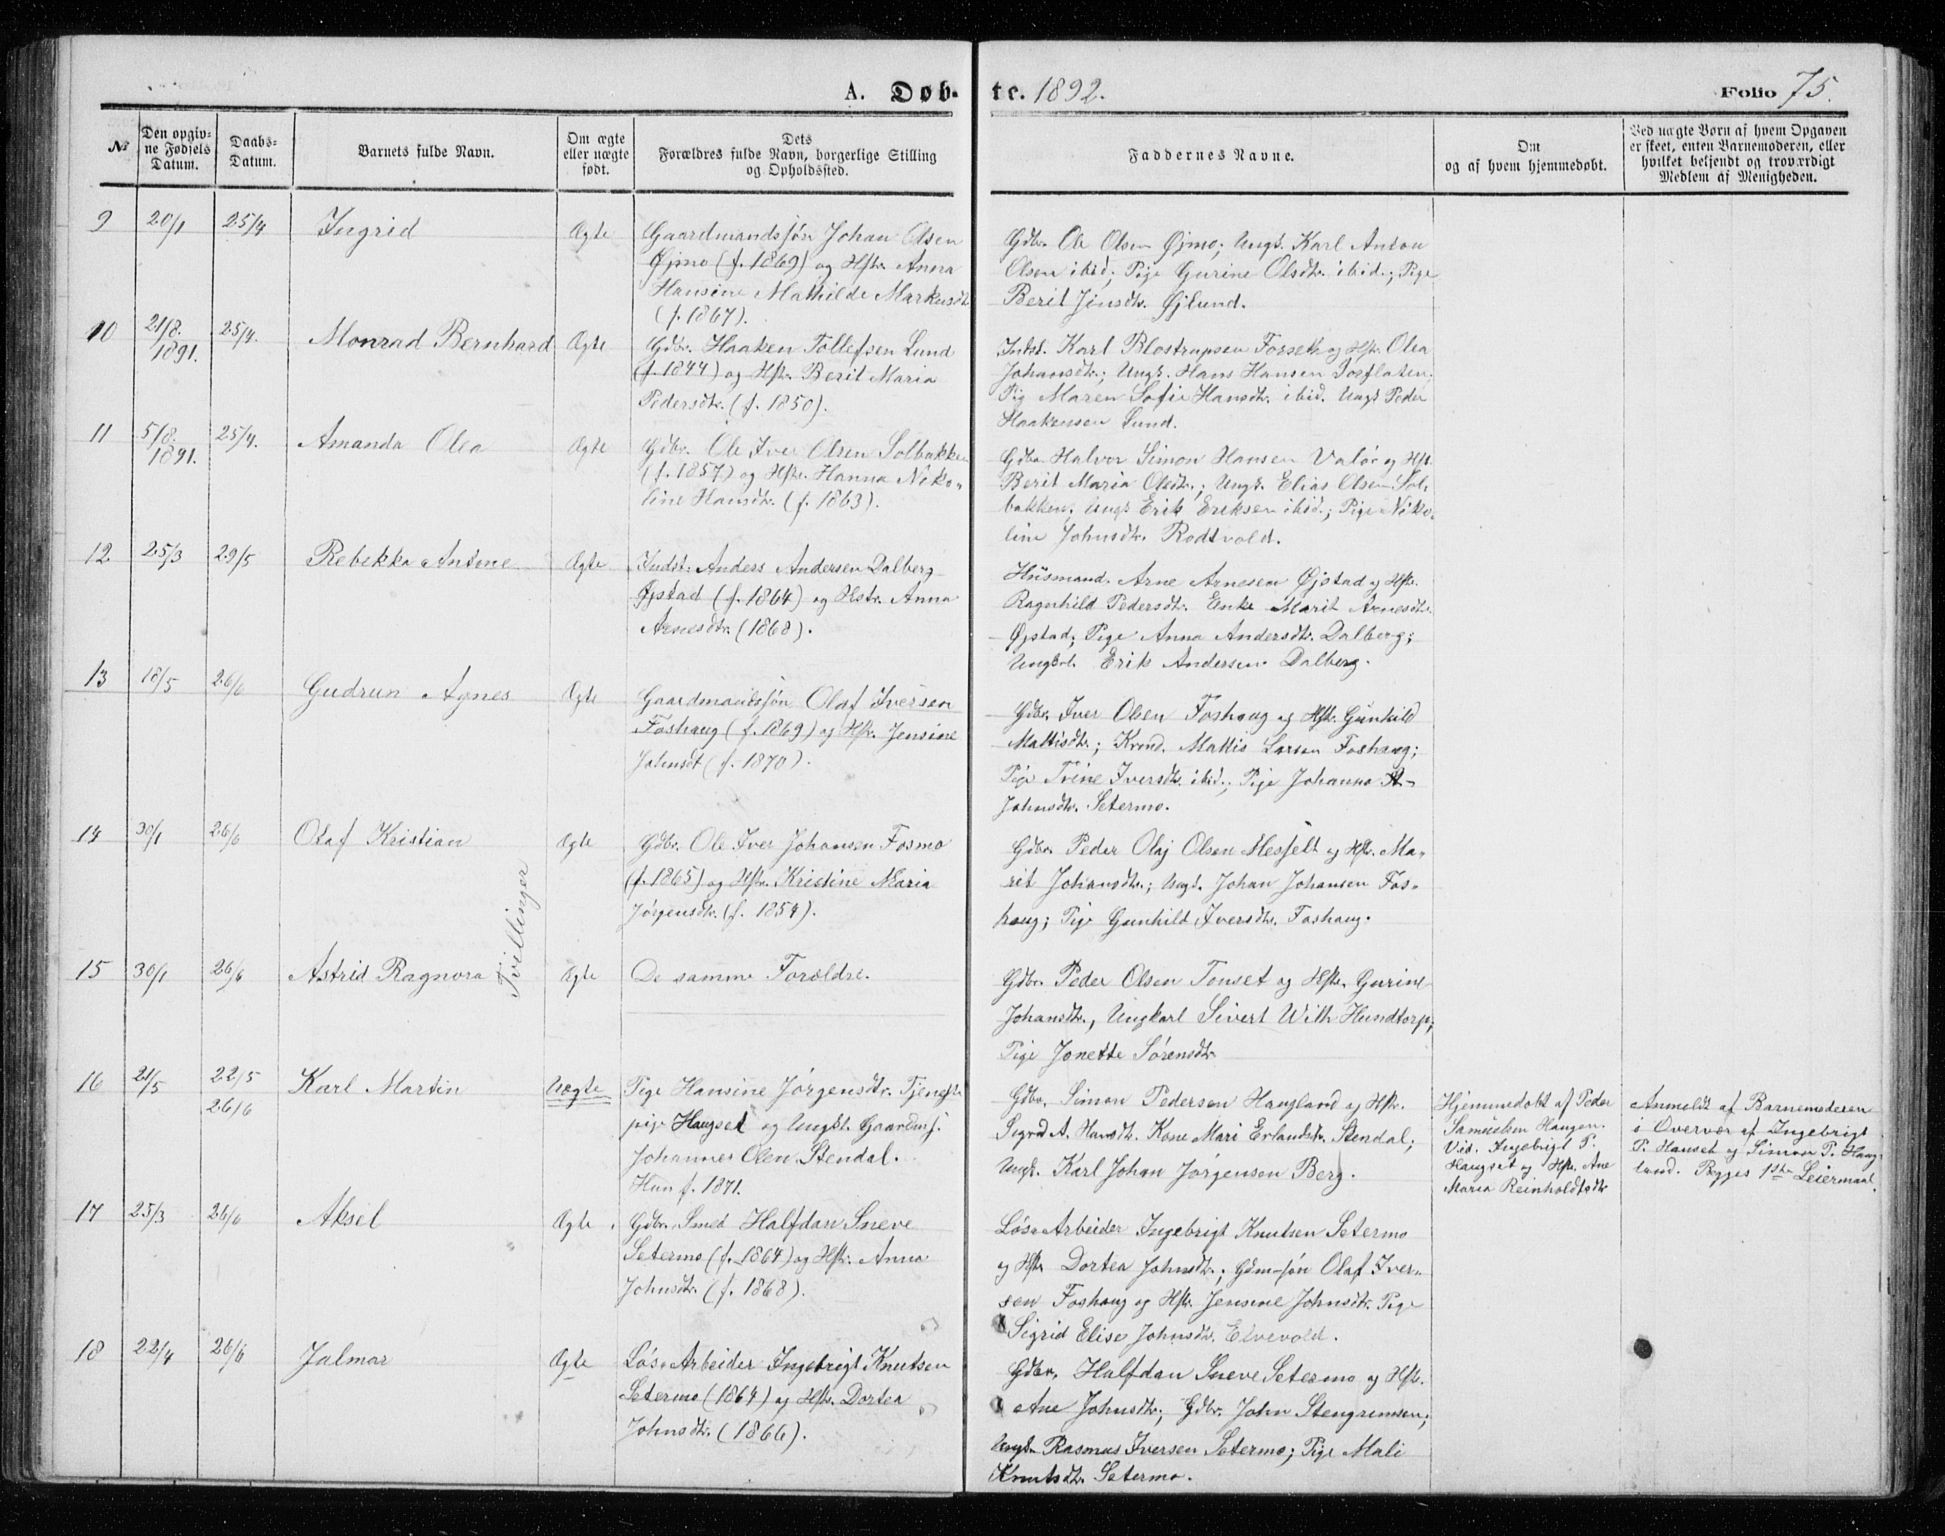 A. Døb-
te. 1892.
Folio 75.
№
Den opgiv-
ne Fødsels
Datum.
Daabs-
Datum.
Barnets fulde Navn.
Om ægte
eller uægte
født.
Dets
Forældres fulde Navn, borgerlige Stilling
og Opholdssted.
Faddernes Navne.
Om
og af hvem hjemmedøbt.
Ved uægte Børn af hvem Opgaven
er skeet, enten Barnemoderen, eller
hvilket bekjendt og troværdigt
Medlem af Menigheden.
9 20/1 25/4 Ingrid Ægte
Gaardmandssøn Johan Olsen
Øjmo (f. 1869) og Hstr. Anna
Hansine Mathilde Markusdt
(f. 1867).
Gdbr. Ole Olsen Øjmo; Ungk. Karl Anton
Olsen ibid; Pige Gurine Olsdtr. ibid.; Pige
Berit Jonsdtr. Øjlund.
10 21/8. 1891. 25/4. Monrad Bernhard Ægte
Gdbr. Haaken Tollefsen Lund
(f. 1844) og Hstr. Berit Maria
Pedersdtr. (f. 1850).
Indst. Karl Blostrupsen Forseth og Hstr. Olea
Johansdtr.; Ungk. Hans Hansen
Pig Maren Sofie Hansdtr. ibid. Ungk Peder
Haakensen Lund.
11 5/8. 1891. 25/4. Amanda Olea Ægte
Gdbr. Ole Iver Olsen Solbakken
(f. 1857) og Hstr. Hanna Niko-
line Hansdtr. (f. 1863).
Gdbr Halvor Simon Hansen Valør og Hstr.
Berit Maria Olsdtr.; Ungk. Elias Olsen Sol-
bakken; Ungk Erik Eriksen ibid.; Pige Niko-
line Johnsdtr. Rodtvold.
12 25/3 29/5 Rebekka Antone Ægte
Indst. Anders Andersen Dalberg
Øjstad (f. 1864) og Hstr. Anna
Arnesdtr. (1868).
Husmand. Arne Arnesen Øjstad og Hstr.
Ragnhild Pedersdtr. Enke Marit Arnesdtr.
Øjstad; Pige Anna Andersdtr. Dalberg;
Ungkal. Erik Andersen Dalberg.
13 18/5 26/6 Gudrun Agnes Ægte
Gaardmandssøn Olaf Iversen
Foshaug (f. 1869) og Hstr. Jensine
Johnsdt (f. 1870).
Gdbr. Iver Olsen Foshaug og Hstr. Gunhild
Mattisdtr.; Kvmd. Mattis Larsen Foshaug;
Pige Trine Iversdtr. ibid.; Pige Johanna A-
Johnsdtr. Setermo.
14 30/1 26/6 Olaf Kristian Ægte
Tvillinger
Gdbr. Ole Iver Johansen Fosmo
(f. 1865) og Hstr. Kristine Maria
Jørgensdtr. (f. 1854).
Gdbr Peder Olaj Olsen Mesjelt og Hstr. Ma-
rit Johansdtr.; Ungk. Johan Johansen Fos-
haug; Pige Gunhild Iversdtr. Foshaug.
15 30/1 26/6 Astrid Ragnora Ægte
De samme Forældre.
Gdbr. Peder Olsen Tonset og Hstr. Gurine
Johansdtr., Ungkarl Sivert With Hundtorp;
Pige Jonette Sørensdtr
16 21/5 22/5 26/6 Karl Martin Uægte
Pige Hansine Jørgensdtr. Tjeneste
pige Haugset og Ungk. Gaardbrs.
Johannes Olsen Stendal.
Hun f. 1871.
Gdbr. Simon Pedersen Haugland og Hstr.
Sigrd A. Hansdtr. Kone Mari Erlandsdtr. Stendal;
Ungk. Karl Johan Jørgensen Berg.
Hjemmedøbt af Peder
Samuelsen Haugen.
Vid. Ingebrigt P.
Haugset og Hstr. Ane
Maria Reinholdtsdtr
Anmeldt af Barnemoderen
i Overvær af Ingebrigt
P. Hauset og Simon P. Haug-
land. Begges 1ste Leiermaal.
17 25/3 26/6 Aksel Ægte
Gdbr. Smed Halfdan Sneve
Setermo (f. 1864) og Hstr. Anna
Johnsdtr. (f. 1868).
Løs Arbeider Ingebrigt Knutsen Setermo
og Hstr Dortea Johnsdtr.; Gdm-søn Olaf Iver-
sen Foshaug og Hstr. Jensine Johnsdtr. Pige
Sigrid Elise Johnsdtr. Elvevold.
18 22/4 26/6 Jalmar Ægte
Løs Arbeider Ingebrigt Knutsen
Setermo (1864) og Hstr. Dortea
Johnsdtr. (1866).
Gdbr. Halfdan Sneve Setermo og Hstr.
Ane Johnsdtr; Gdbr. John Stengrimsen;
Ungk Rasmus Iversen Setermo; Pige Mali
Knutsdtr. Setermo.